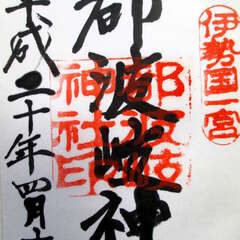 伊勢国一宮
都波岐神
都波岐
神社印
平成二十年四月